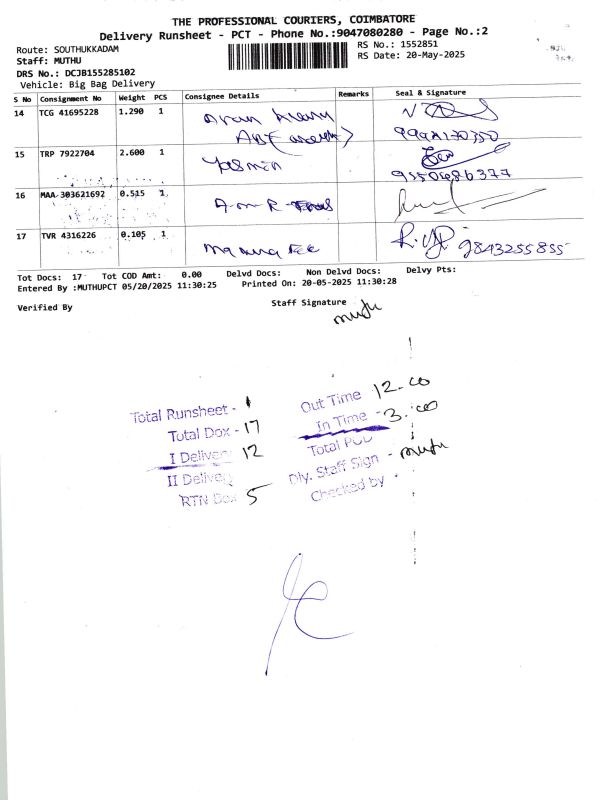 THE PROFESSIONAL COURIERS, COIMBATORE
Delivery Runsheet - PCT - Phone No.:9047080280 - Page No.:2
Route: SOUTHUKKADAM
Staff: MUTHU
DRS No.: DCJB155285102
Vehicle: Big Bag Delivery
RS No.: 1552851
RS Date: 20-May-2025
S No Consignment No Weight PCS Consignee Details Remarks Seal & Signature
14 TCG 41695228 1.290 1
15 TRP 7922704 2.600 1 Yasmin
9550686377
16 MAA 303621692 0.515 1 A-m-R
17 TVR 4316226 0.105 1 9843255855
Tot Docs: 17 Tot COD Amt: 0.00 Delvd Docs: Non Delvd Docs: Delvy Pts:
Entered By :MUTHUPCT 05/20/2025 11:30:25 Printed On: 20-05-2025 11:30:28
Verified By
Staff Signature
muthu
Total Runsheet - 1
Total Dox - 17
I Delivery 12
II Delivery
RTN Dox 5
Out Time 12-00
In Time - 3.00
Total POD
Dly. Staff Sign - muthu
Checked by -